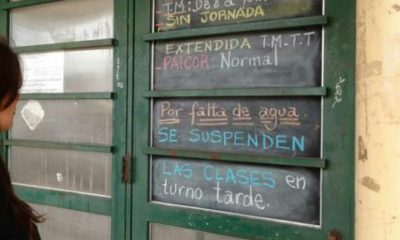 T.M: De 8 a
SIN JORNADA
EXTENDIDA T.M-T.T
PAICOR: Normal
Por falta de agua
SE SUSPENDEN
LAS CLASES en
turno tarde.